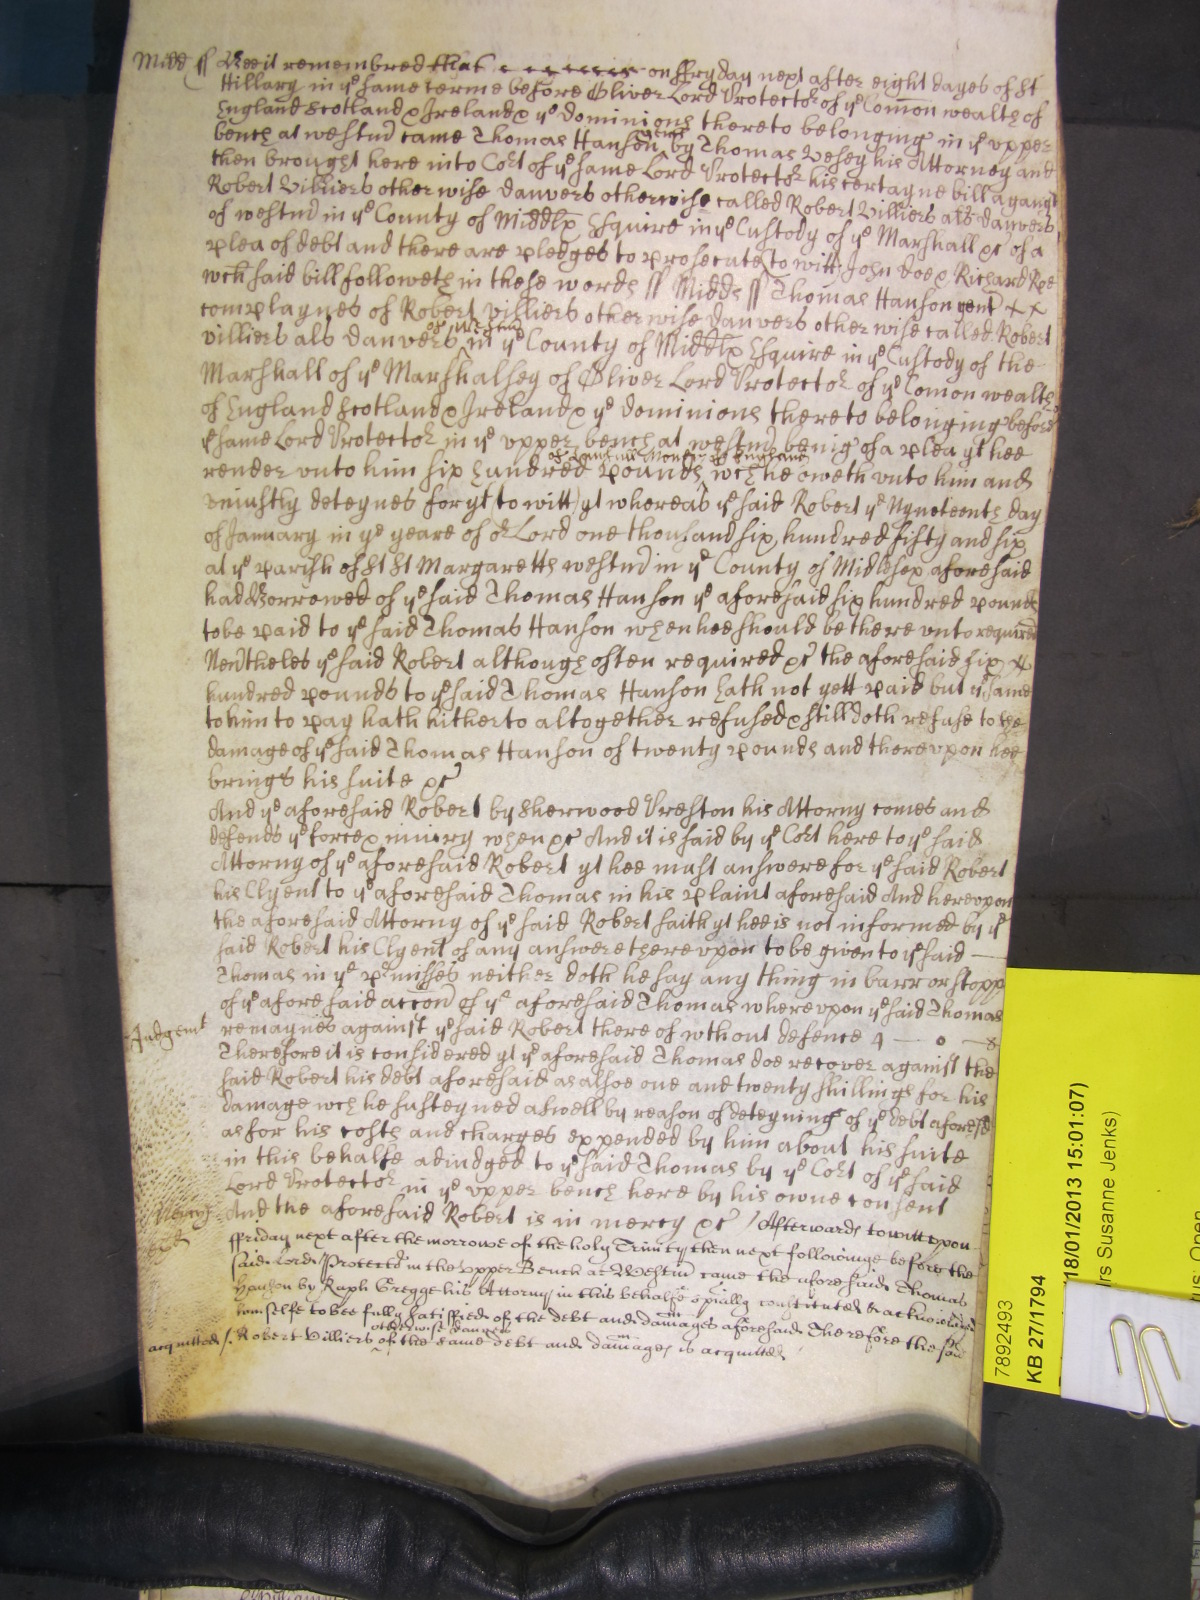 Midd ss Bee it remembred that on ffryday next after eight dayes of St
Hillary in ye same terme before Oliver Lord Protector of ye Comon wealth of
England Scotland & Ireland & ye dominions thereto belonging in ye upper
bench at westmr came Thomas Hanson gent by Thomas Vesey his Attorney and
then brought here into Cort of ye same Lord Protector his certayne bill against
Robert Villiers otherwise danvers otherwise called Robert Villiers als danvers
of westmr in ye County of Middlx Esquire in ye Custody of ye Marshall &c of a
plea of debt and there are pledges to prosecute to witt John doe & Richard Roe
wch said bill followeth in these words ss Midds ss Thomas Hanson gent x x
complaynes of Robert Villiers otherwise danvers otherwise called Robert
villiers als danvers of westmr in ye County of Middlx Esquire in ye Custody of the
Marshall of ye Marshalsey of Oliver Lord Protector of ye Comon wealth
of England Scotland & Ireland & ye dominions thereto belonging before
ye same Lord Protector in ye upper bench at westmr being of a plea yt hee
render unto him six hundred pounds of lawfull money of England wch he oweth unto him and
uniustly deteynes for yt (to witt) yt whereas ye said Robert ye Nyneteenth day
of January in ye yeare of or Lord one thousand six hundred fifty and six
at ye parish of St Margaretts westmr in ye County of Midlesex aforesaid
had Borrowed of ye said Thomas Hanson ye aforesaid six hundred pounds
to be paid to ye said Thomas Hanson when hee should be there unto required
Nevtheles ye said Robert although often required &c the aforesaid six
hundred pounds to ye said Thomas Hanson hath not yett paid but ye same
to him to pay hath hitherto altogether refused & still doth refuse to the
damage of ye said Thomas Hanson of twenty pounds and thereupon hee
brings his suite &c
And ye aforesaid Robert by Sherwood Preston his Attorny comes and
defends ye force & iniury when &c And it is said by ye Cort here to ye said
Attorny of ye aforesaid Robert yt hee must answere for ye said Robert
his Clyent to ye aforesaid Thomas in his plaint aforesaid And hereupon
the aforesaid Attorny of ye said Robert saith yt hee is not informed by ye
said Robert his Clyent of any answere thereupon to be given to ye said
Thomas in ye prmisses neither doth he say any thing in barr or stopp
of ye aforesaid accon of ye aforesaid Thomas whereupon ye said Thomas
remaynes against ye said Robert there of wthout defence
Judgent Therefore it is considered yt ye aforesaid Thomas doe recover against the
said Robert his debt aforesaid as alsoe one and twenty shillings for his
damage wch he susteyned aswell by reason of deteyning of ye debt aforesd
as for his costs and charges expended by him about his suite
in this behalfe adiudged to ye said Thomas by ye Cort of ye said
Lord Protector in ye upper bench here by his owne consent
Mercy And the aforesaid Robert is in mercy &c / Afterwards to witt upon
ffriday next after the morrowe of the holy Trinity then next followinge before the
said Lord Protector in the Upper Bench at Westmr came the aforesaid Thomas
Hanson by Raph Gregge his Attorny in this behalfe spially constituted & acknowledged
himselfe to bee fully satisfied of the debt and damages aforesaid Therefore the said
acquitted /. Robert Villiers otherwise Danvers of the same debt and damages is acquitted
7892493
KB 27/1794
18/01/2013 15:01:07)
rs Susanne Jenks)
Open